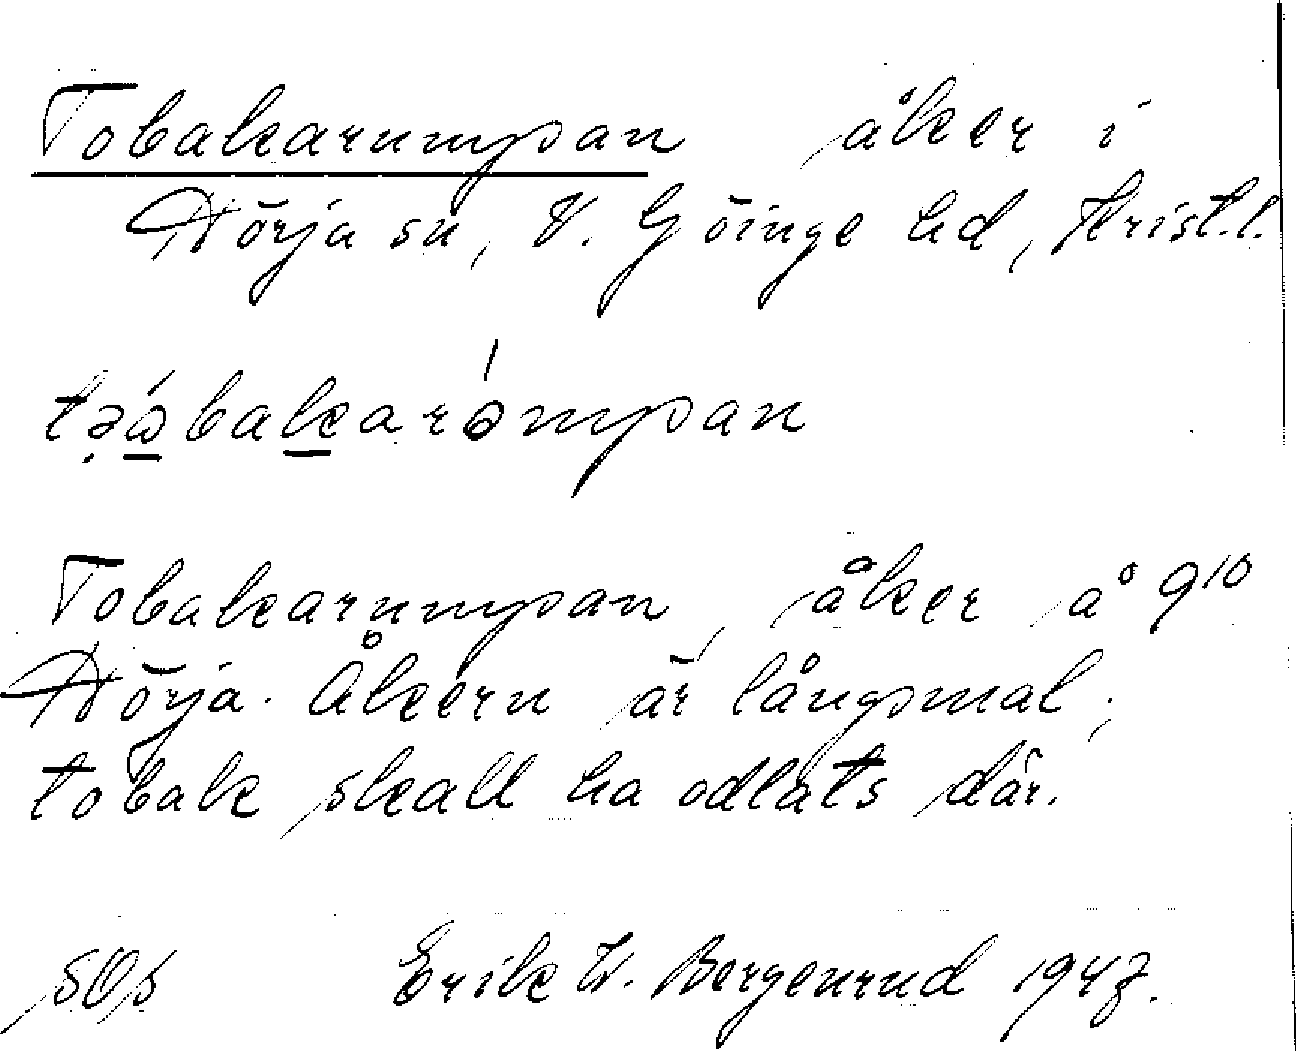 Tobakarumpan åker i
Nörja sn, V. Göinge hd, Krist.l.
tə̣ώ̲bak̲arómpan
Tobakarumpan, åker å 9¹⁰
Nörja. Åkern är långsmal;
tobak skall ha odlats där.
SOS Erik W. Bergenrud 1947.